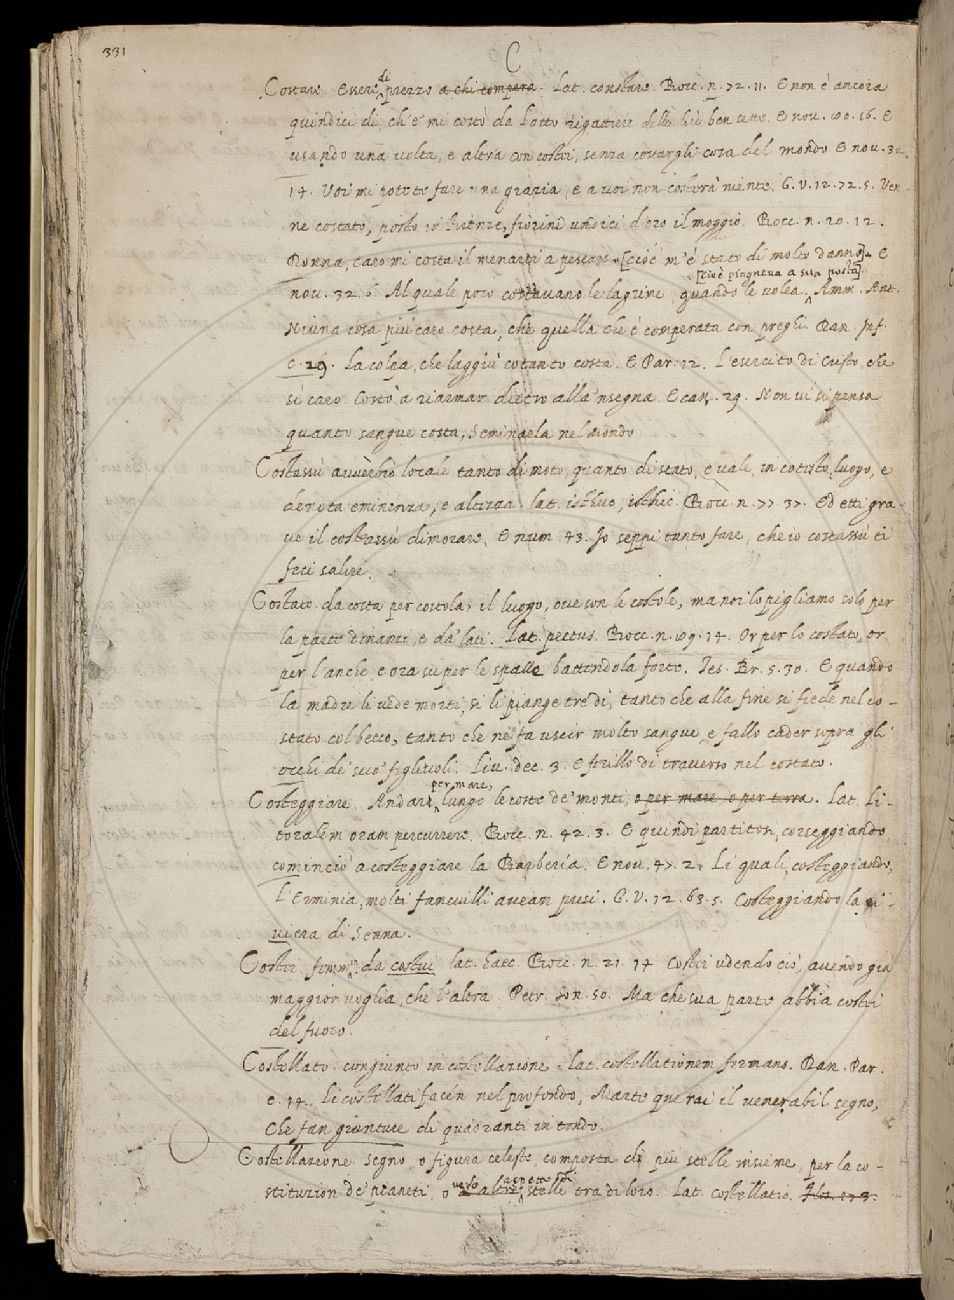 331
C
Costare. Essere di prezzo a chi compera. Lat. constare. Bocc. n. 72. 11. E non è ancora
quindici dì, ch'e' mi costò da Lotto rigattiere delle lire ben sette. E nov. 100. 16. E
usando una volta, e altra con costui, senza costargli cosa del mondo E nov. 32.
14. Voi mi potete fare una grazia, e a voi non costerà niente. G. V. 12. 72. 5. Ven-
ne costato, posto in Firenze, fiorini undici d'oro il moggio. Bocc. n. 20. 12.
Donna, caro mi costa il menarti a pescare [cioè m'è stato di molto danno] E
[cioè piagneva a sua posta]
nov. 32. 6. Al quale poco costavano le lagrime, quando le volea. Amm. Ant.
Niuna cosa più caro costa, che quella che è comperata con preghi. Dan. Inf.
c. 29. La colpa, che laggiù cotanto costa. E Par. 12. L'esercito di Cristo, che
sì caro Costò a riarmar dietro alla 'nsegna. E can. 29. Non vi si pensa
quanto sangue costa, Seminarla nel mondo
Costassù avverbio locale tanto di moto, quanto di stato, e vale, in cotesto luogo, e
denota eminenza, e altezza. lat. isthuc, isthic. Bocc. n. 77 37. Ed etti gra-
ve il costassù dimorare. E num 43. Io seppi tanto fare, che io costassù ti
feci salire.
Costato. da costa per costola, il luogo, ove son le costole, ma noi lo pigliamo solo per
la parte dinanzi, e da' lati. Lat. pectus. Bocc. n. 109. 14. Or per lo costato, or
per l'anche, e ora su per le spalle battendola forte. Tes. Br. 5. 30. E quando
la madre li vede morti, si li piange tre dì, tanto che alla fine si fiede nel co-
stato col becco, tanto che ne fa uscir molto sangue, e fallo cader sopra gli
occhi de' suoi figliuoli. Liv. dec. 3. E ferillo di traverso nel costato.
Costeggiare. Andare per mare, lungo le coste de' monti, o per mare o per terra. Lat. Li-
toralem oram percurrere. Bocc. n. 42. 3. E quindi partitosi, corseggiando
cominciò a costeggiare la Barberia. E nov. 47. 2. Li quali, costeggiando,
l'Erminia, molti fanciulli aveam presi. G. V. 12. 63. 5. Costeggiando la ri-
viera di Senna.
Costei femm. da costui lat. haec. Bocc. n. 21. 14 Costei udendo ciò, avendo già
maggior voglia, che l'altra. Petr. son. 50. Ma che sua parte abbia costei
del fuoco.
Costellato. congiunto in costellazione. lat. costellationem formans. Dan. Par.
c. 14. Sì costellati facén nel profondo, Marte que' rai il venerabil segno,
Che fan giunture di quadranti in tondo.
Costellazione. Segno, o figura celeste, composta di più stelle insieme, per la co-
stituzion de' pianeti, o vero aspetto di altre stelle tra di loro. Lat. costellatio.